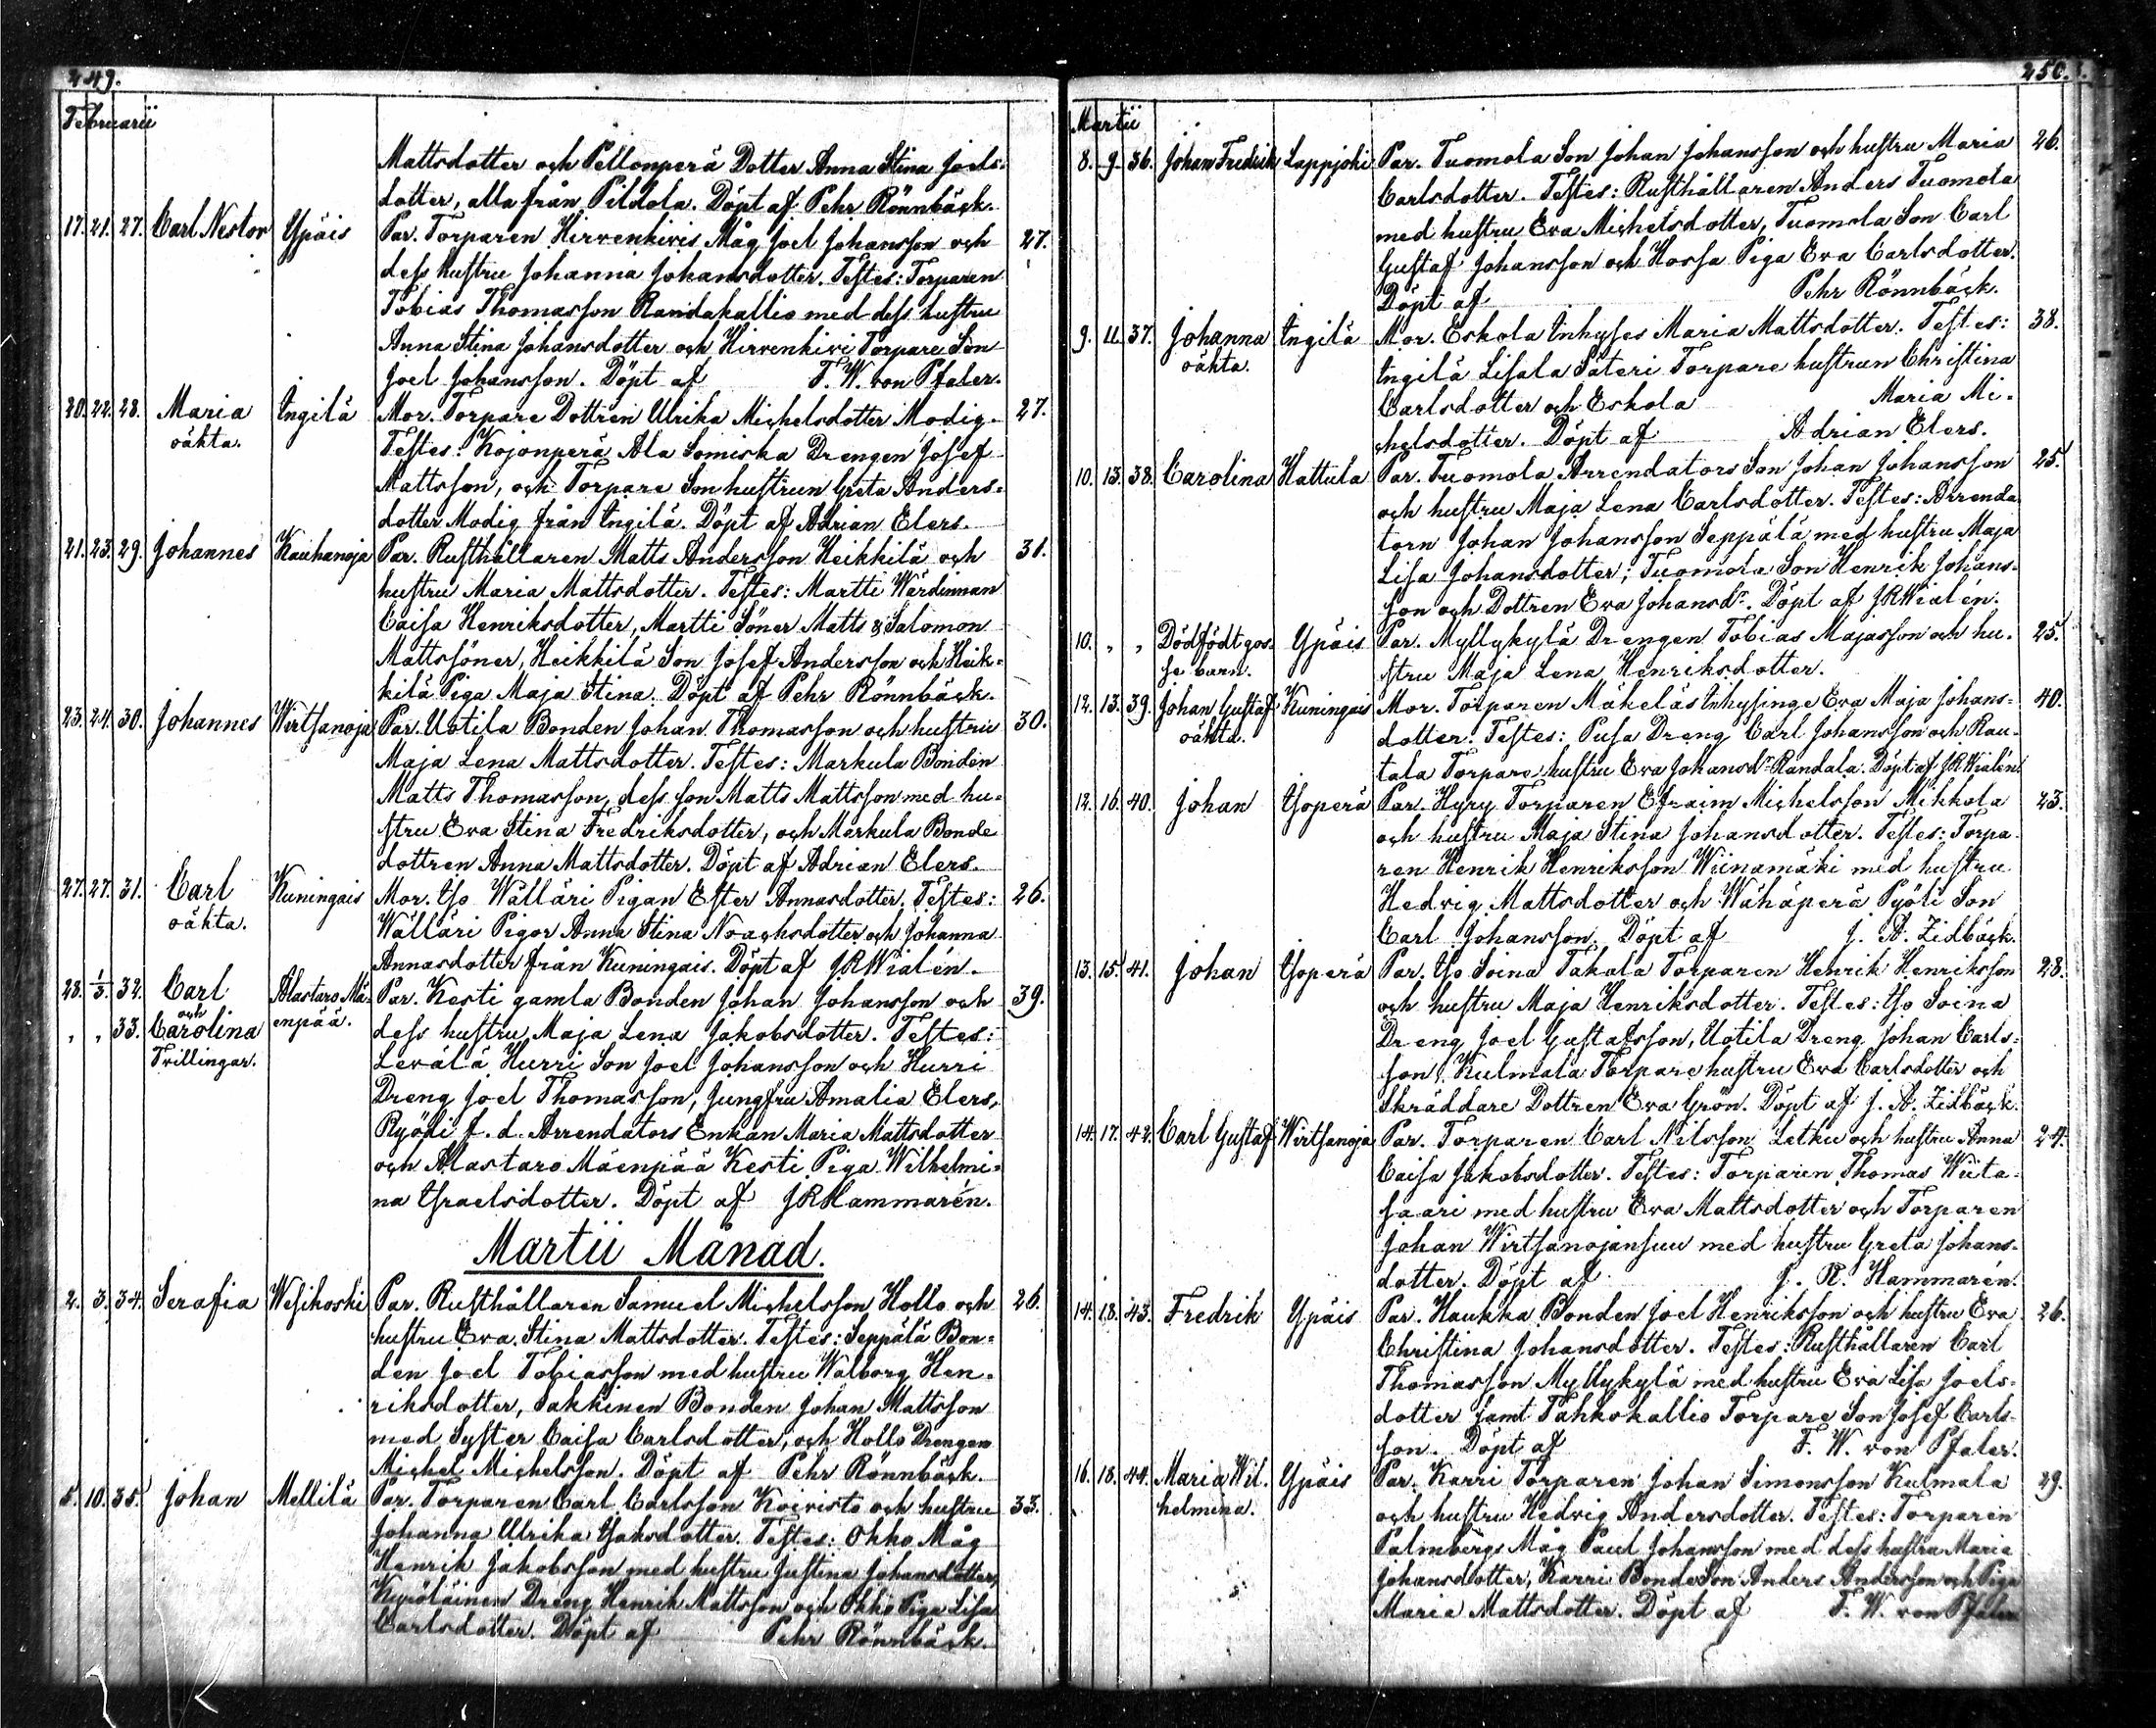 449.
Februarii
Mattsdotter och Pellonperä Dotter Anna Stina Joels-
dotter, alla från Pildola. Döpt af Pehr Rönnbäck.
17. 21. 27. Carl Nestor Ypäis Par. Torparen Hirvenkivis Måg Joel Johansson och 27.
dess hustru Johanna Johansdotter. Testes: Torparen
Tobias Thomasson Randakallio med dess hustru
Anna Stina Johansdotter och Hirvenkivi Torpare Son
Joel Johansson. Döpt af F. W. von Pfaler.
20. 22. 28. Maria Ingilä Mor. Torpare Dottren Ulrika Michelsdotter Modig. 27.
oäkta. Testes: Kojonperä Ala Somiska Drengen Josef
Mattsson, och Torpare Sonhustrun Greta Anders-
dotter Modig från Ingilä. Döpt af Adrian Elers.
21. 23. 29. Johannes Kauhanoja Par. Rusthållaren Matts Andersson Heikkilä och 31.
hustru Maria Mattsdotter. Testes: Martti Wärdinnan
Caisa Henriksdotter, Martti Söner Matts & Salomon
Mattssöner, Heikkilä Son Josef Andersson och Heik-
kilä Piga Maja Stina. Döpt af Pehr Rönnbäck.
23. 24. 30. Johannes Wirtsanoja Par. Uotila Bonden Johan Thomasson och hustru 30.
Maja Lena Mattsdotter. Testes: Markula Bonden
Matts Thomasson, dess son Matts Mattsson med hu-
stru Eva Stina Fredriksdotter, och Markula Bonde
dottren Anna Mattsdotter. Döpt af Adrian Elers.
27. 27. 31. Carl Kuningais Mor. Iso Wälläri Pigan Ester Annasdotter. Testes: 26.
oäkta. Wälläri Pigor Anna Stina Noachsdotter och Johanna
Annasdotter från Kuningais. Döpt af JRWialén.
28. 1/3. 32. Carl Alastaro Mä- Par. Kesti gamla Bonden Johan Johansson och 39.
och
" " 33. Carolina enpää. dess hustru Maja Lena Jakobsdotter. Testes:
Trillingar. Leválá Hurri Son Joel Johansson och Hurri
Dreng Joel Thomasson, Jungfru Amalia Elers,
Ryödi f. d. Arrendators Enkan Maria Mattsdotter
och Alastaro Mäenpää Kesti Piga Wilhelmi-
na Israelsdotter. Döpt af JRHammarén.
Martii Månad.
2. 3. 34. Serafia Wesikoski Par. Rusthållaren Samuel Michelsson Hollo och 26.
hustru Eva Stina Mattsdotter. Testes: Seppälä Bon-
den Joel Tobiasson med hustru Walborg Hen-
riksdotter, Sakkinen Bonden Johan Mattsson
med Syster Caisa Carlsdotter, och Hollo Drengen
Michel Michelsson. Döpt af Pehr Rönnbäck.
5. 10. 35. Johan Mellilä Par. Torparen Carl Carlsson Koivisto och hustru 33.
Johanna Ulrika Isaksdotter. Testes: Okko Måg
Henrik Jakobsson med hustru Justina Johansdotter,
Kyröläinen Dreng Henrik Mattsson och Okko Piga Lisa
Carlsdotter. Döpt af Pehr Rönnbäck.
250.
Martii
8. 9. 36. Johan Fredrik Lappjoki Par. Tuomola Son Johan Johansson och hustru Maria 26.
Carlsdotter. Testes: Rusthållaren Anders Tuomola
med hustru Eva Michelsdotter, Tuomola Son Carl
Gustaf Johansson och Hossa Piga Eva Carlsdotter.
Döpt af Pehr Rönnbäck.
9. 11. 37. Johanna Ingilä Mor. Eskola Inhyses Maria Mattsdotter. Testes: 38.
oäkta. Ingilä Lisala Säteri Torpare hustrun Christina
Carlsdotter och Eskola Maria Mi-
chelsdotter. Döpt af Adrian Elers.
10. 13. 38. Carolina Hattula Par. Tuomola Arrendators Son Johan Johansson 25.
och hustru Maja Lena Carlsdotter. Testes: Arrenda
torn Johan Johansson Seppälä med hustru Maja
Lisa Johansdotter, Tuomola Son Henrik Johans-
son och Dottren Eva Johansdr. Döpt af JRWialén.
10. " " Dödfödt gos- Ypäis Par. Myllykylä Drengen Tobias Majasson och hu- 25.
se barn. stru Maja Lena Henriksdotter.
12. 13. 39. Johan Gustaf Kuningais Mor. Torparen Mäkeläs Inhysinge Eva Maja Johans- 40.
oäkta. dotter. Testes: Pusa Dreng Carl Johansson och Rau-
tala Torpare hustru Eva Johansdr. Randala. Döpt af JRWialén.
12. 16. 40. Johan Isoperä Par. Hyry Torparen Efraim Michelsson Mikkola 23.
och hustru Maja Stina Johansdotter. Testes: Torpa-
ren Henrik Henriksson Wiinamäki med hustru
Hedvig Mattsdotter och Wähäperä Pyöli Son
Carl Johansson. Döpt af J. A. Zidbäck.
13. 15. 41. Johan Isoperä Par. Iso Soina Takala Torparen Henrik Henriksson 28.
och hustru Maja Henriksdotter. Testes: Iso Soina
Dreng Joel Gustafsson, Uotila Dreng Johan Carls-
son, Kulmala Torpare hustru Eva Carlsdotter och
Skräddare Dottren Eva Grön. Döpt af J. A. Zidbäck.
14. 17. 42. Carl Gustaf Wirtsanoja Par. Torparen Carl Nilsson Letku och hustru Anna 24.
Caisa Jakobsdotter. Testes: Torparen Thomas Wiita-
saari med hustru Eva Mattsdotter och Torparen
Johan Wirtsanojansuu med hustru Greta Johans-
dotter. Döpt af J. R. Hammarén.
14. 18. 43. Fredrik Ypäis Par. Haukka Bonden Joel Henriksson och hustru Eva 26.
Christina Johansdotter. Testes: Rusthållaren Carl
Thomasson Myllykylä med hustru Eva Lisa Joels-
dotter samt Tahkokallio Torpare Son Josef Carls-
son. Döpt af F. W. von Pfaler.
16. 18. 44. Maria Wil- Ypäis Par. Karri Torparen Johan Simonsson Kulmala 29.
helmina. och hustru Hedvig Andersdotter. Testes: Torparen
Palmbergs Måg Paul Johansson med dess hustru Maria
Johansdotter, Karri BondeSon Anders Andersson och Piga
Maria Mattsdotter. Döpt af F. W. von Pfaler